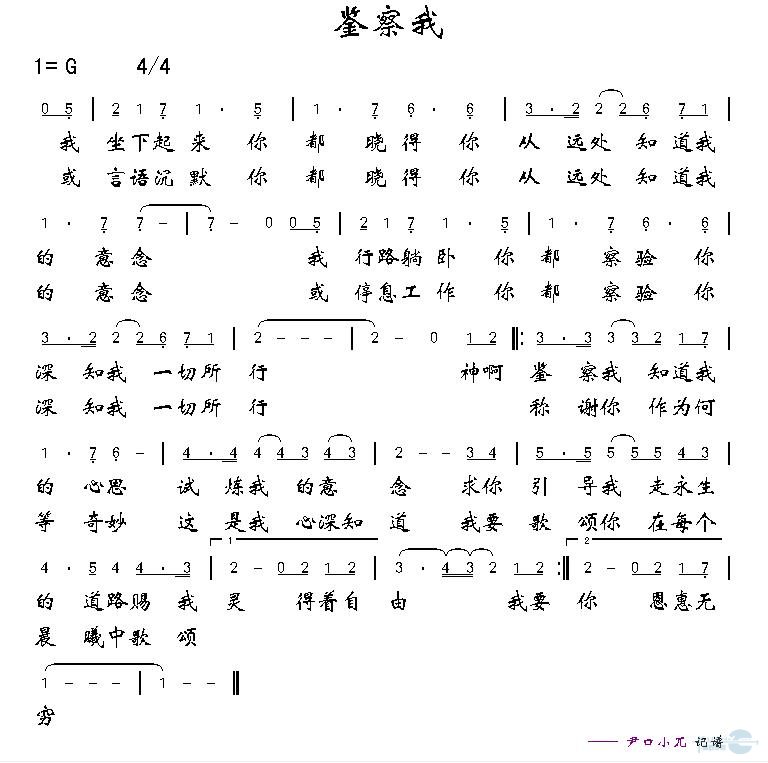 鉴察我
1=G 4/4
0 5 | 2 1 7 1 · 5 | 1 · 7 6 · 6 | 3 · 2 2 2 6 7 1 |
我 坐下起来 你 都 晓得你 从 远处 知道我
或 言语沉默 你 都 晓得你 从 远处 知道我
1 · 7 7 – | 7 – 0 0 5 | 2 1 7 1 · 5 | 1 · 7 6 · 6 |
的 意念 我 行路躺卧 你 都 察验你
的 意念 或 停息工作 你 都 察验你
3 · 2 2 2 6 7 1 | 2 – – – | 2 – 0 1 2 ‖: 3 · 3 3 3 2 1 7 |
深 知我 一切所 行 神啊 鉴 察我 知道我
深 知我 一切所 行 称 谢你 作为何
1 · 7 6 – | 4 · 4 4 4 3 4 3 | 2 – – 3 4 | 5 · 5 5 5 5 4 3 |
的 心思 试 炼我 的意 念 求你 引 导我 走永生
等 奇妙 这 是我 心深知 道 我要 歌 颂你 在每个
4 · 5 4 4 · 3 | 1 2 – 0 2 1 2 | 3 · 4 3 2 1 2 :‖ 2 2 – 0 2 1 7 |
的 道路赐 我 灵 得着自 由 我要 你 恩惠无
晨 曦中歌 颂
1 – – – | 1 – – – ‖
穷
—— 尹口小兀 记谱